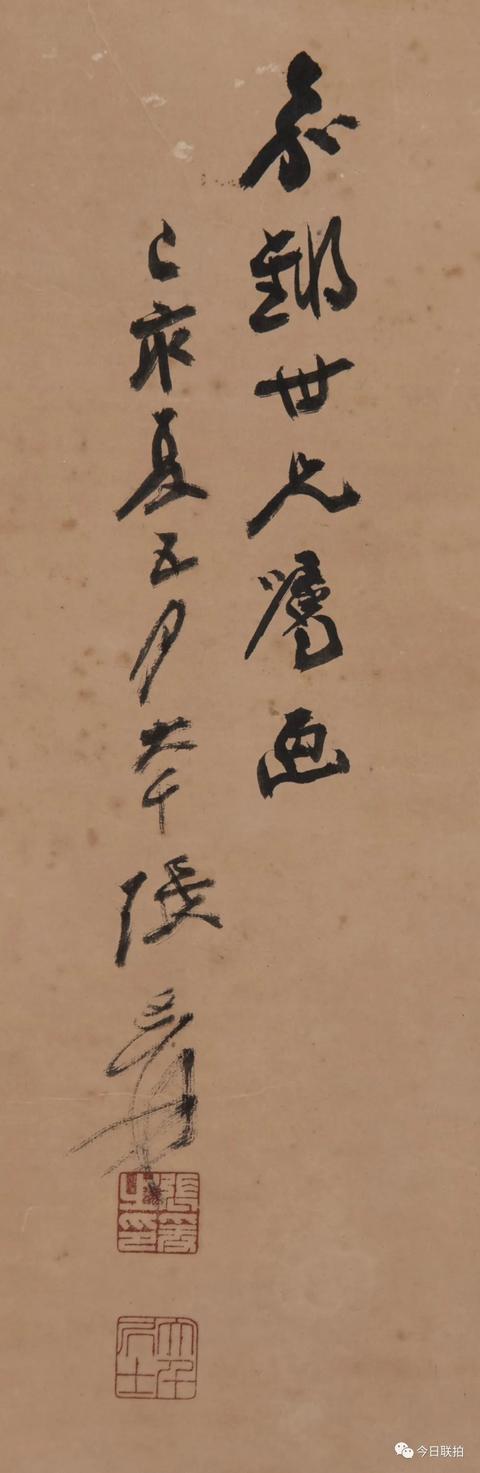 世兄嘱画
己亥夏五月大千張爰
張爰之印
大千居士
今日联拍